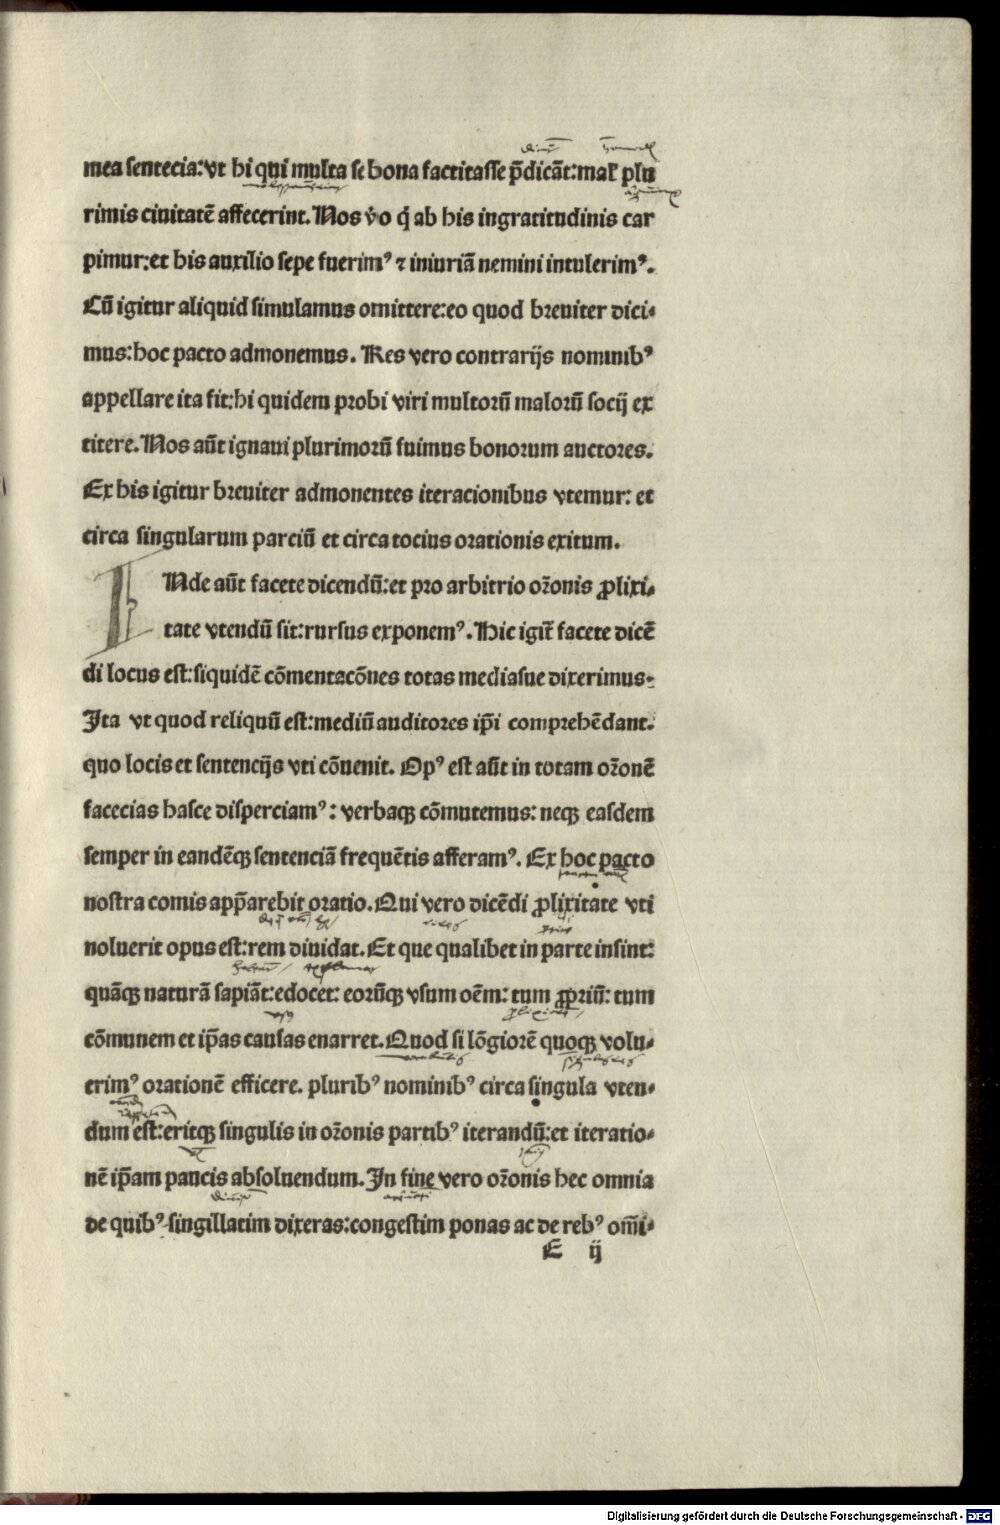 mea sentecia: vt hi qui multa se bona factitasse p̄dicāt: mal' plu
rimis ciuitatē affecerint. Nos v̊o q̄ ab his ingratitudinis car
pimur: et his auxilio sepe fuerimꝰ ⁊ iniuriā nemini intulerimꝰ.
Cū igitur aliquid simulamus omittere: eo quod breuiter dici⸗
mus: hoc pacto admonemus. Res vero contrarijs nominibꝰ
appellare ita fit: hi quidem probi viri multorū malorū socij ex
titere. Nos aūt ignaui plurimorū fuimus bonorum auctores.
Ex his igitur breuiter admonentes iteracionibus vtemur: et
circa singularum parciū et circa tocius orationis exitum.
VNde aūt facete dicendū: et pro arbitrio or̄onis ꝓlixi⸗
tate vtendū sit: rursus exponemꝰ. Hic igit̄ facete dicē
di locus est: siquidē cōmentacōnes totas mediasue dixerimus:
Ita vt quod reliquū est: mediū auditores ip̄i comprehēdant.
quo locis et sentencijs vti cōuenit. Opꝰ est aūt in totam or̄onē
facecias hasce disperciamꝰ: verbaqꝫ cōmutemus: neqꝫ easdem
semper in eandēqꝫ sentenciā frequētis afferamꝰ. Ex hoc pacto
nostra comis app̄arebit oratio. Qui vero dicēdi ꝓlixitate vti
noluerit opus est: rem diuidat. Et que qualibet in parte insint:
quāqꝫ naturā sapiāt: edocet: eorūqꝫ vsum oēm: tum ꝓpriū: tum
cōmunem et ip̄as causas enarret. Quod si lōgiorē quoqꝫ volu⸗
erimꝰ orationē efficere. pluribꝰ nominibꝰ circa singula vten⸗
dum est: eritqꝫ singulis in or̄onis partibꝰ iterandū: et iteratio⸗
nē ip̄am paucis absoluendum. In fine vero or̄onis hec omnia
de quibꝰ singillatim dixeras: congestim ponas ac de rebꝰ om̄i⸗
E ij
Digitalisierung gefördert durch die Deutsche Forschungsgemeinschaft - DFG